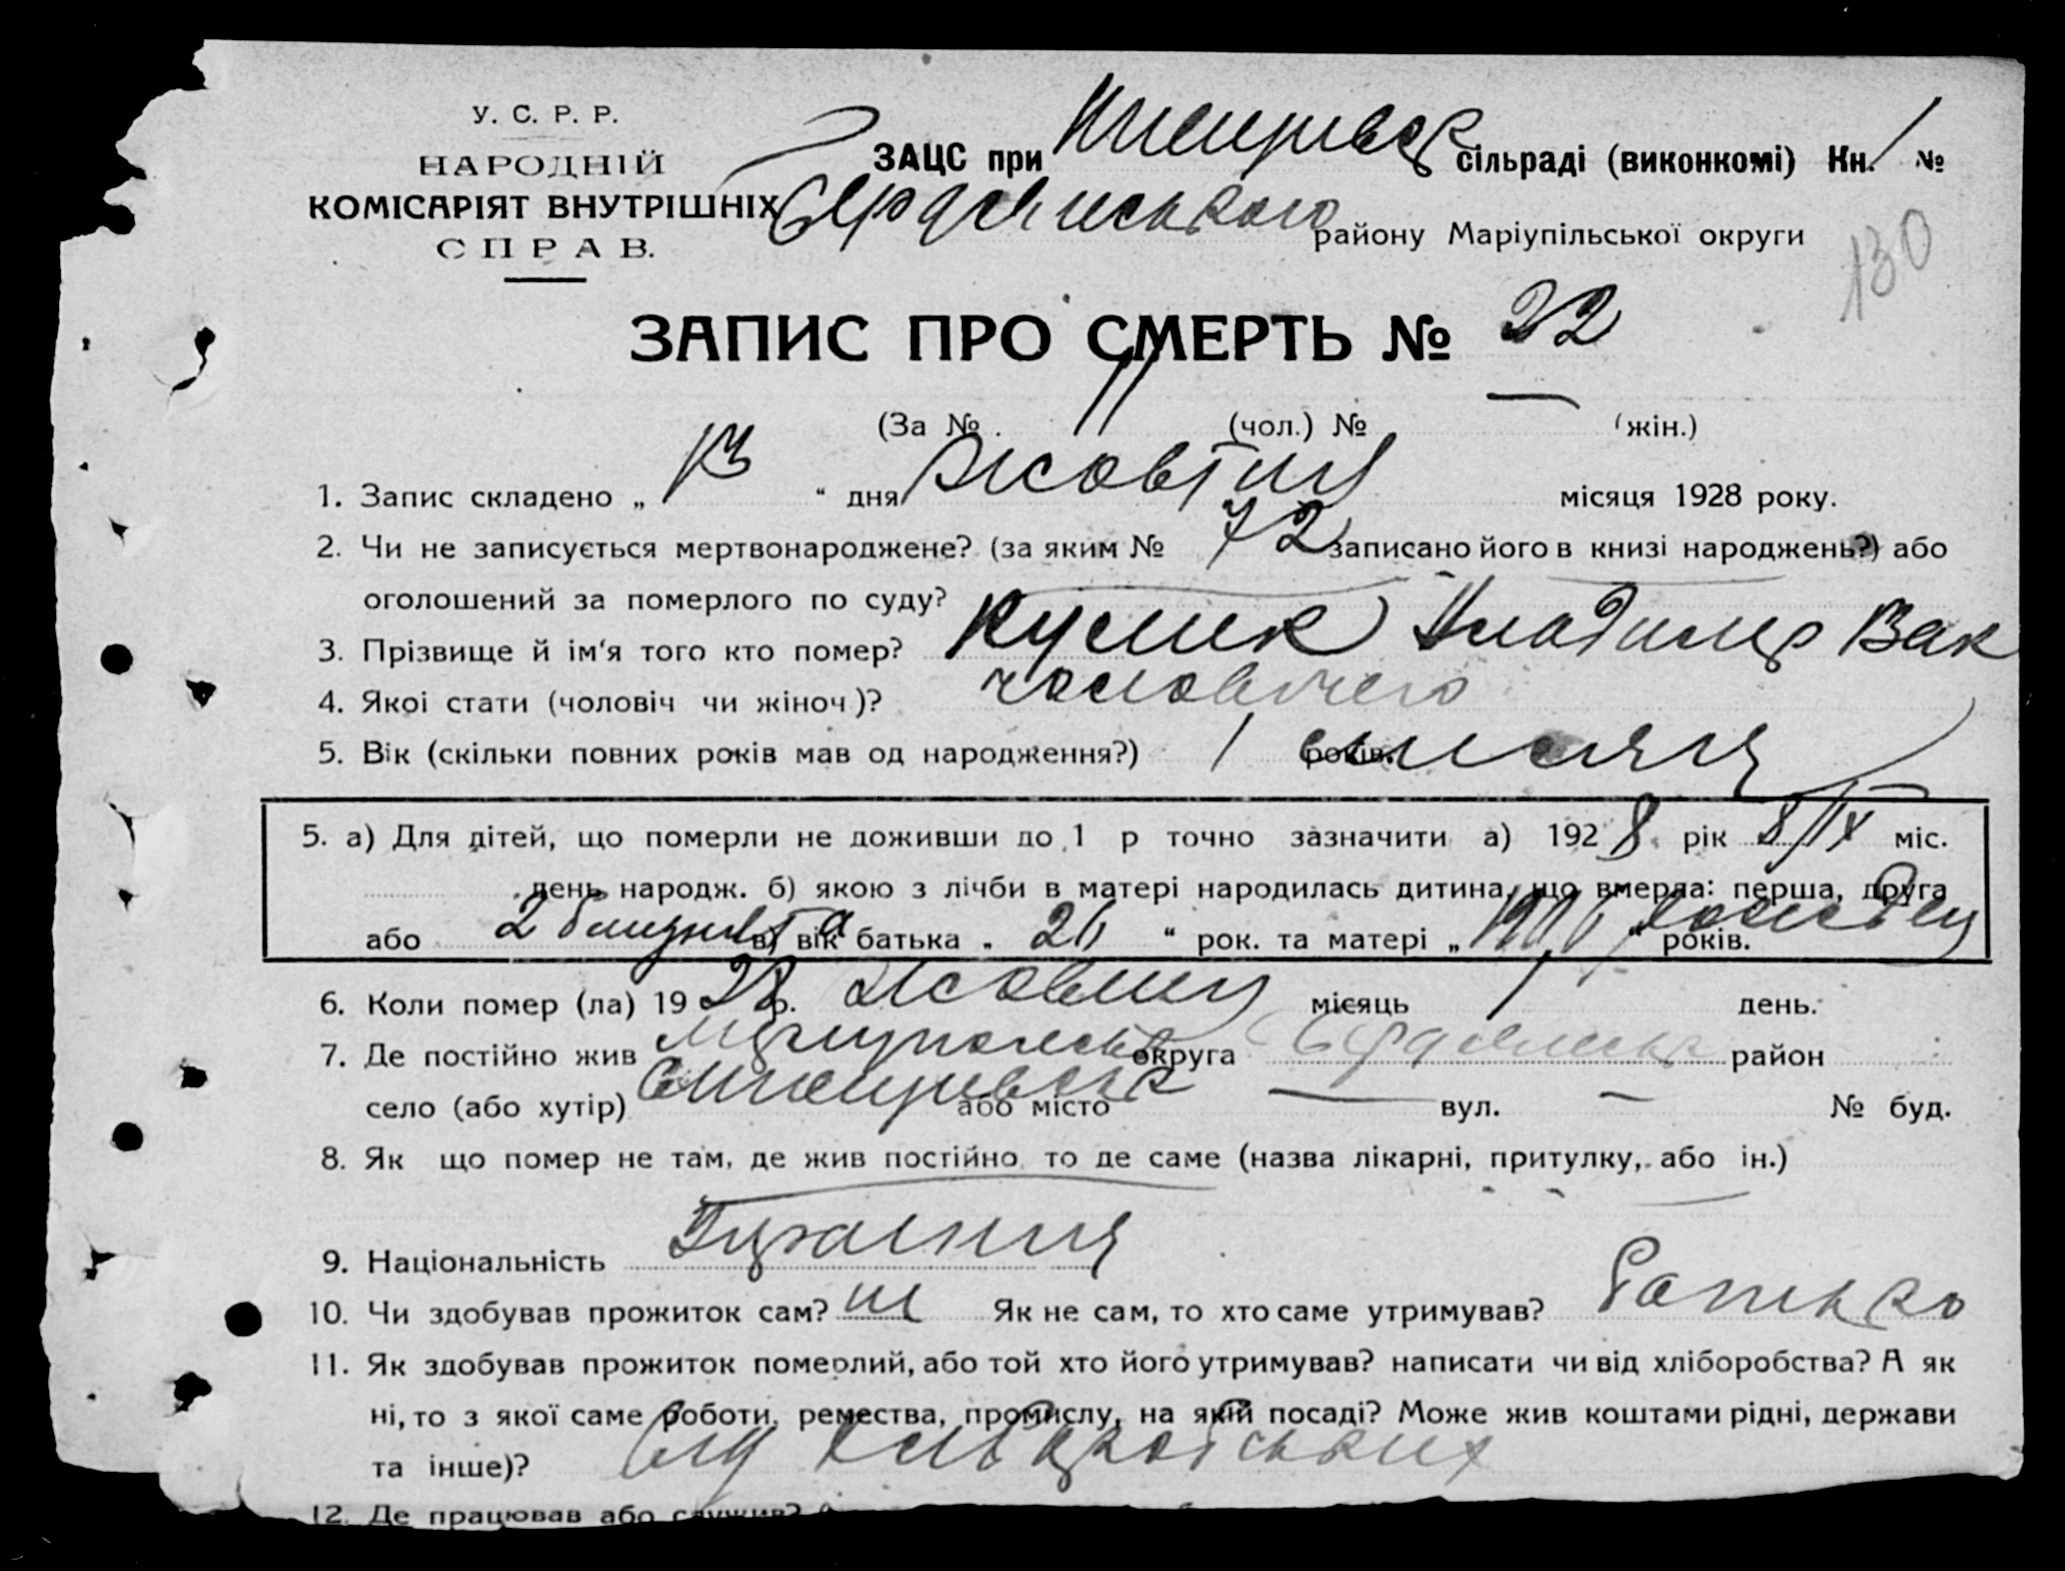 У. С. Р. Р.
НАРОДНІЙ
КОМІСАРІЯТ ВНУТРІШНІХ
СПРАВ.
ЗАЦС при сільраді (виконкомі) Кн. 1 №
району Маріупільської округи
130
ЗАПИС ПРО СМЕРТЬ № 22
(За № 11 (чол.) № — (жін.)
1. Запис складено „ 13 “ дня Жовтня місяця 1928 року.
2. Чи не записується мертвонароджене? (за яким № 72 записано його в книзі народжень?) або
оголошений за померлого по суду?
3. Прізвище й ім'я того кто помер? Кулик Владимир Вак
4. Якоі стати (чоловіч чи жіноч)? чоловічего
5. Вік (скільки повних років мав од народження?) 1 років. місяця
5. а) Для дітей, що померли не доживши до 1 р точно зазначити а) 1928 рік 8/IX міс.
день народж. б) якою з лічби в матері народилась дитина, що вмерла: перша, друга
або 2 в) вік батька „ 26 “ рок. та матері „ “ років.
6. Коли помер (ла) 1928 р. Жовтня місяць 1 день.
7. Де постійно жив округа район
село (або хутір) або місто — вул. — № буд.
8. Як що помер не там, де жив постійно то де саме (назва лікарні, притулку, або ін.)
9. Національність
10. Чи здобував прожиток сам? ні Як не сам, то хто саме утримував? батько
11. Як здобував прожиток померлий, або той хто його утримував? написати чи від хліборобства? А як
ні, то з якої саме роботи, ремества, промислу, на якій посаді? Може жив коштами рідні, держави
та інше)?
12. Де працював або служив?